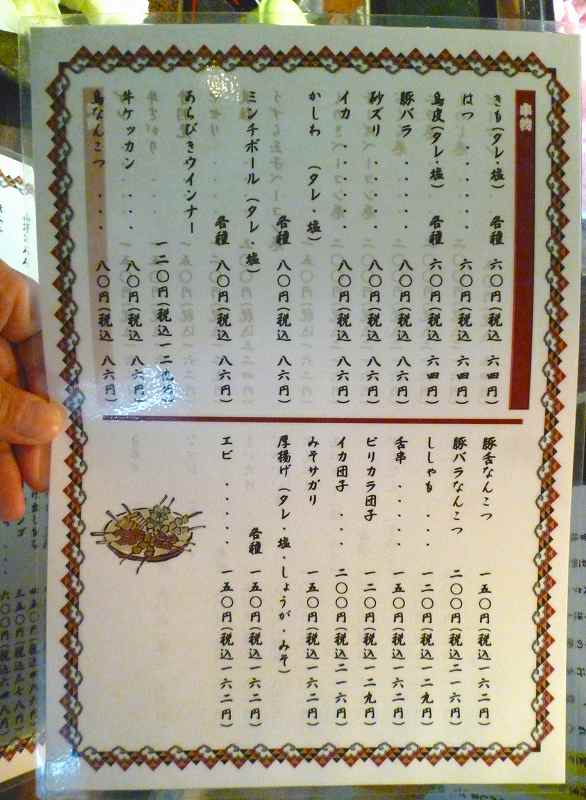 串物
きも(タレ・塩) 各種 六〇円(税込 六四円)
はつ ・・・・・ 六〇円(税込 六四円)
鳥皮(タレ・塩) 各種 六〇円(税込 六四円)
豚バラ ・・・・ 八〇円(税込 八六円)
砂ズリ ・・・・ 八〇円(税込 八六円)
イカ ・・・・ 八〇円(税込 八六円)
かしわ (タレ・塩)
各種 八〇円(税込 八六円)
ミンチボール(タレ・塩)
各種 八〇円(税込 八六円)
あらびきウインナー
一二〇円(税込一二九円)
牛ケッカン ・・・・ 八〇円(税込 八六円)
鳥なんこつ ・・・・ 八〇円(税込 八六円)
豚舌なんこつ 一五〇円(税込一六二円)
豚バラなんこつ 二〇〇円(税込二一六円)
ししゃも ・・・ 一二〇円(税込一二九円)
舌串 ・・・・ 一五〇円(税込一六二円)
ピリカラ団子 一二〇円(税込一二九円)
イカ団子 ・・・ 二〇〇円(税込二一六円)
みそサガリ 一五〇円(税込一六二円)
厚揚げ(タレ・塩・しょうが・みそ)
各種 一五〇円(税込一六二円)
エビ ・・・・・ 一五〇円(税込一六二円)